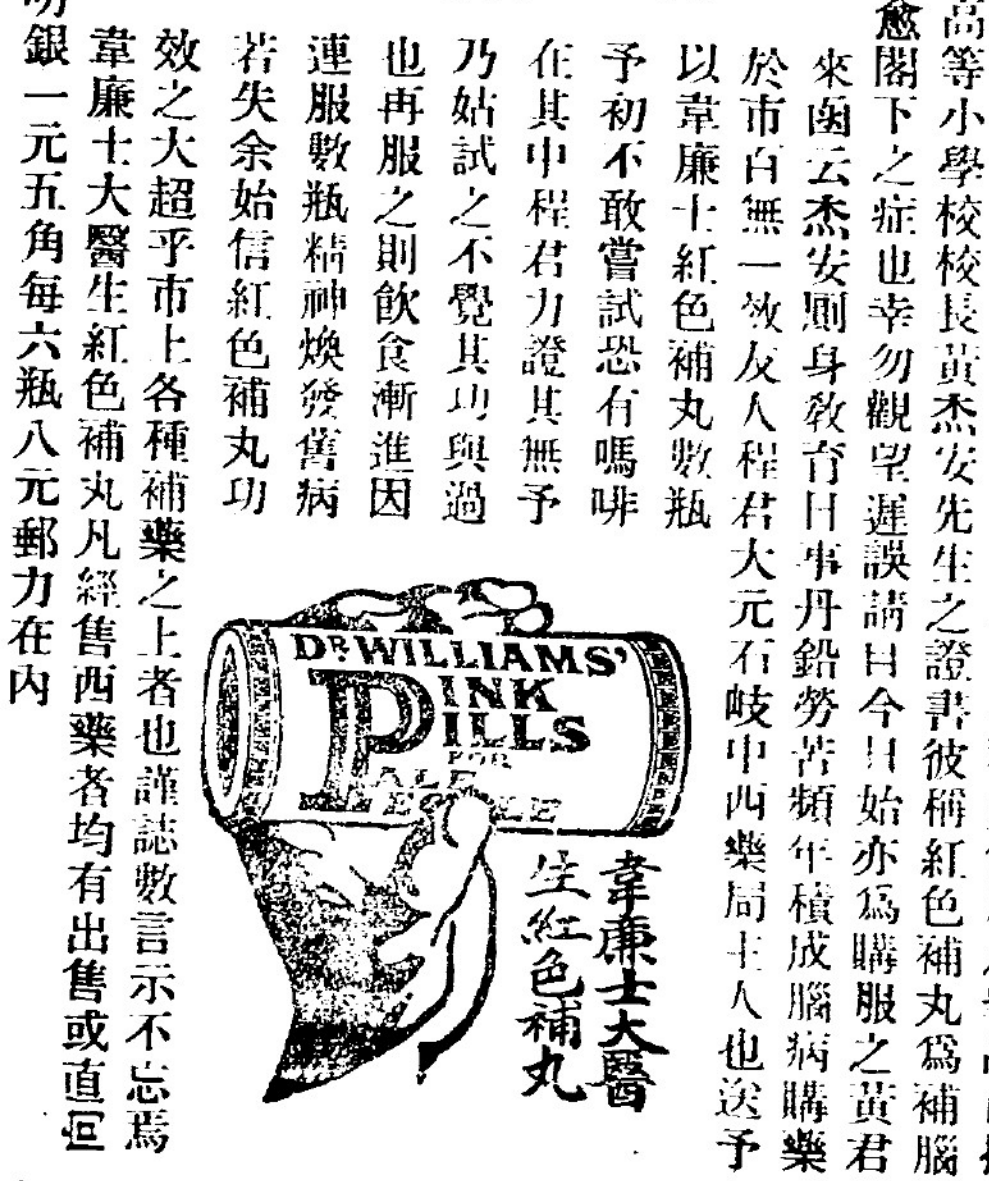 高等小學校校長黃杰安先生之證書彼稱紅色補丸爲補腦
愈閣下之症也幸勿觀望遲誤請日今日始亦爲購服之黃君
來函云杰安廁身敎育日事丹鉛勞苦頻年積成腦病購藥
於市百無一效友人程君大元石岐中西藥局主人也送予
以韋廉士紅色補丸數瓶
予初不敢嘗試恐有嗎啡
在其中程君力證其無予
乃姑試之不覺其功與過
也再服之則飲食漸進因
連服數瓶精神煥發舊病
若失余始信紅色補丸功
效之大超乎市上各種補藥之上者也謹誌數言示不忘焉
韋廉士大醫生紅色補丸凡經售西藥者均有出售或直回
銀一元五角每六瓶八元郵力在內
DR WILLIAMS'
PINK
PILLS
FOR
PALE
PEOPLE
韋廉士大醫
生紅色補丸